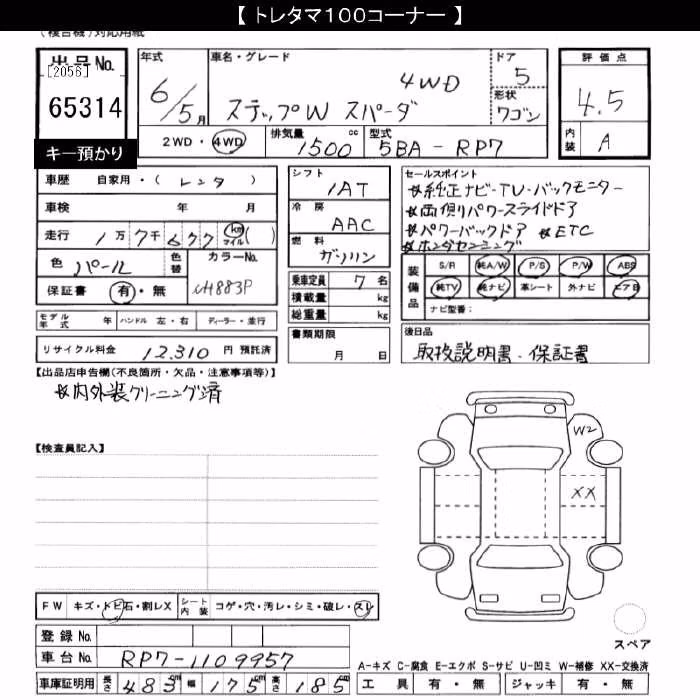 【 トレタマ100コーナー 】
(複合機)対応用紙
出品No.
[2056]
65314
キー預かり
年式
6/5月
車名・グレード
4WD
ステップW スパーダ
ドア
5
形状
ワゴン
評価点
4.5
内装
A
2WD・4WD
排気量 1500 cc
型式 5BA-RP7
車歴 自家用・( レンタ )
車検 年 月
走行 1万7千677 km マイル( )
色 パール
色替
カラーNo.
NH883P
保証書 有・無
シフト
1AT
冷房
AAC
燃料
ガソリン
乗車定員 7名
積載量 kg
総重量 kg
書類期限
月 日
セールスポイント
※純正ナビ-TV-バックモニター
※両側パワースライドドア
※パワーバックドア ※ETC
※ホンダセンシング
装備品
S/R 純A/W P/S P/W ABS
純TV 純ナビ 革シート 外ナビ エアB
ナビ型番:
モデル年式 年 ハンドル 左・右 ディーラー・並行
リサイクル料金 12,310 円 預託済
後日品
取扱説明書・保証書
【出品店申告欄(不良箇所・欠品・注意事項等)】
※内外装クリーニング済
【検査員記入】
W2
XX
FW キズ・トビ石・割レX
シート内装 コゲ・穴・汚レ・シミ・破レ・スレ
スペア
登録No.
車台No. RP7-1109957
車庫証明用 長さ 483cm 幅 175cm 高さ 185cm
A-キズ C-腐食 E-エクボ S-サビ U-凹ミ W-補修 XX-交換済
工具 有・無 ジャッキ 有・無